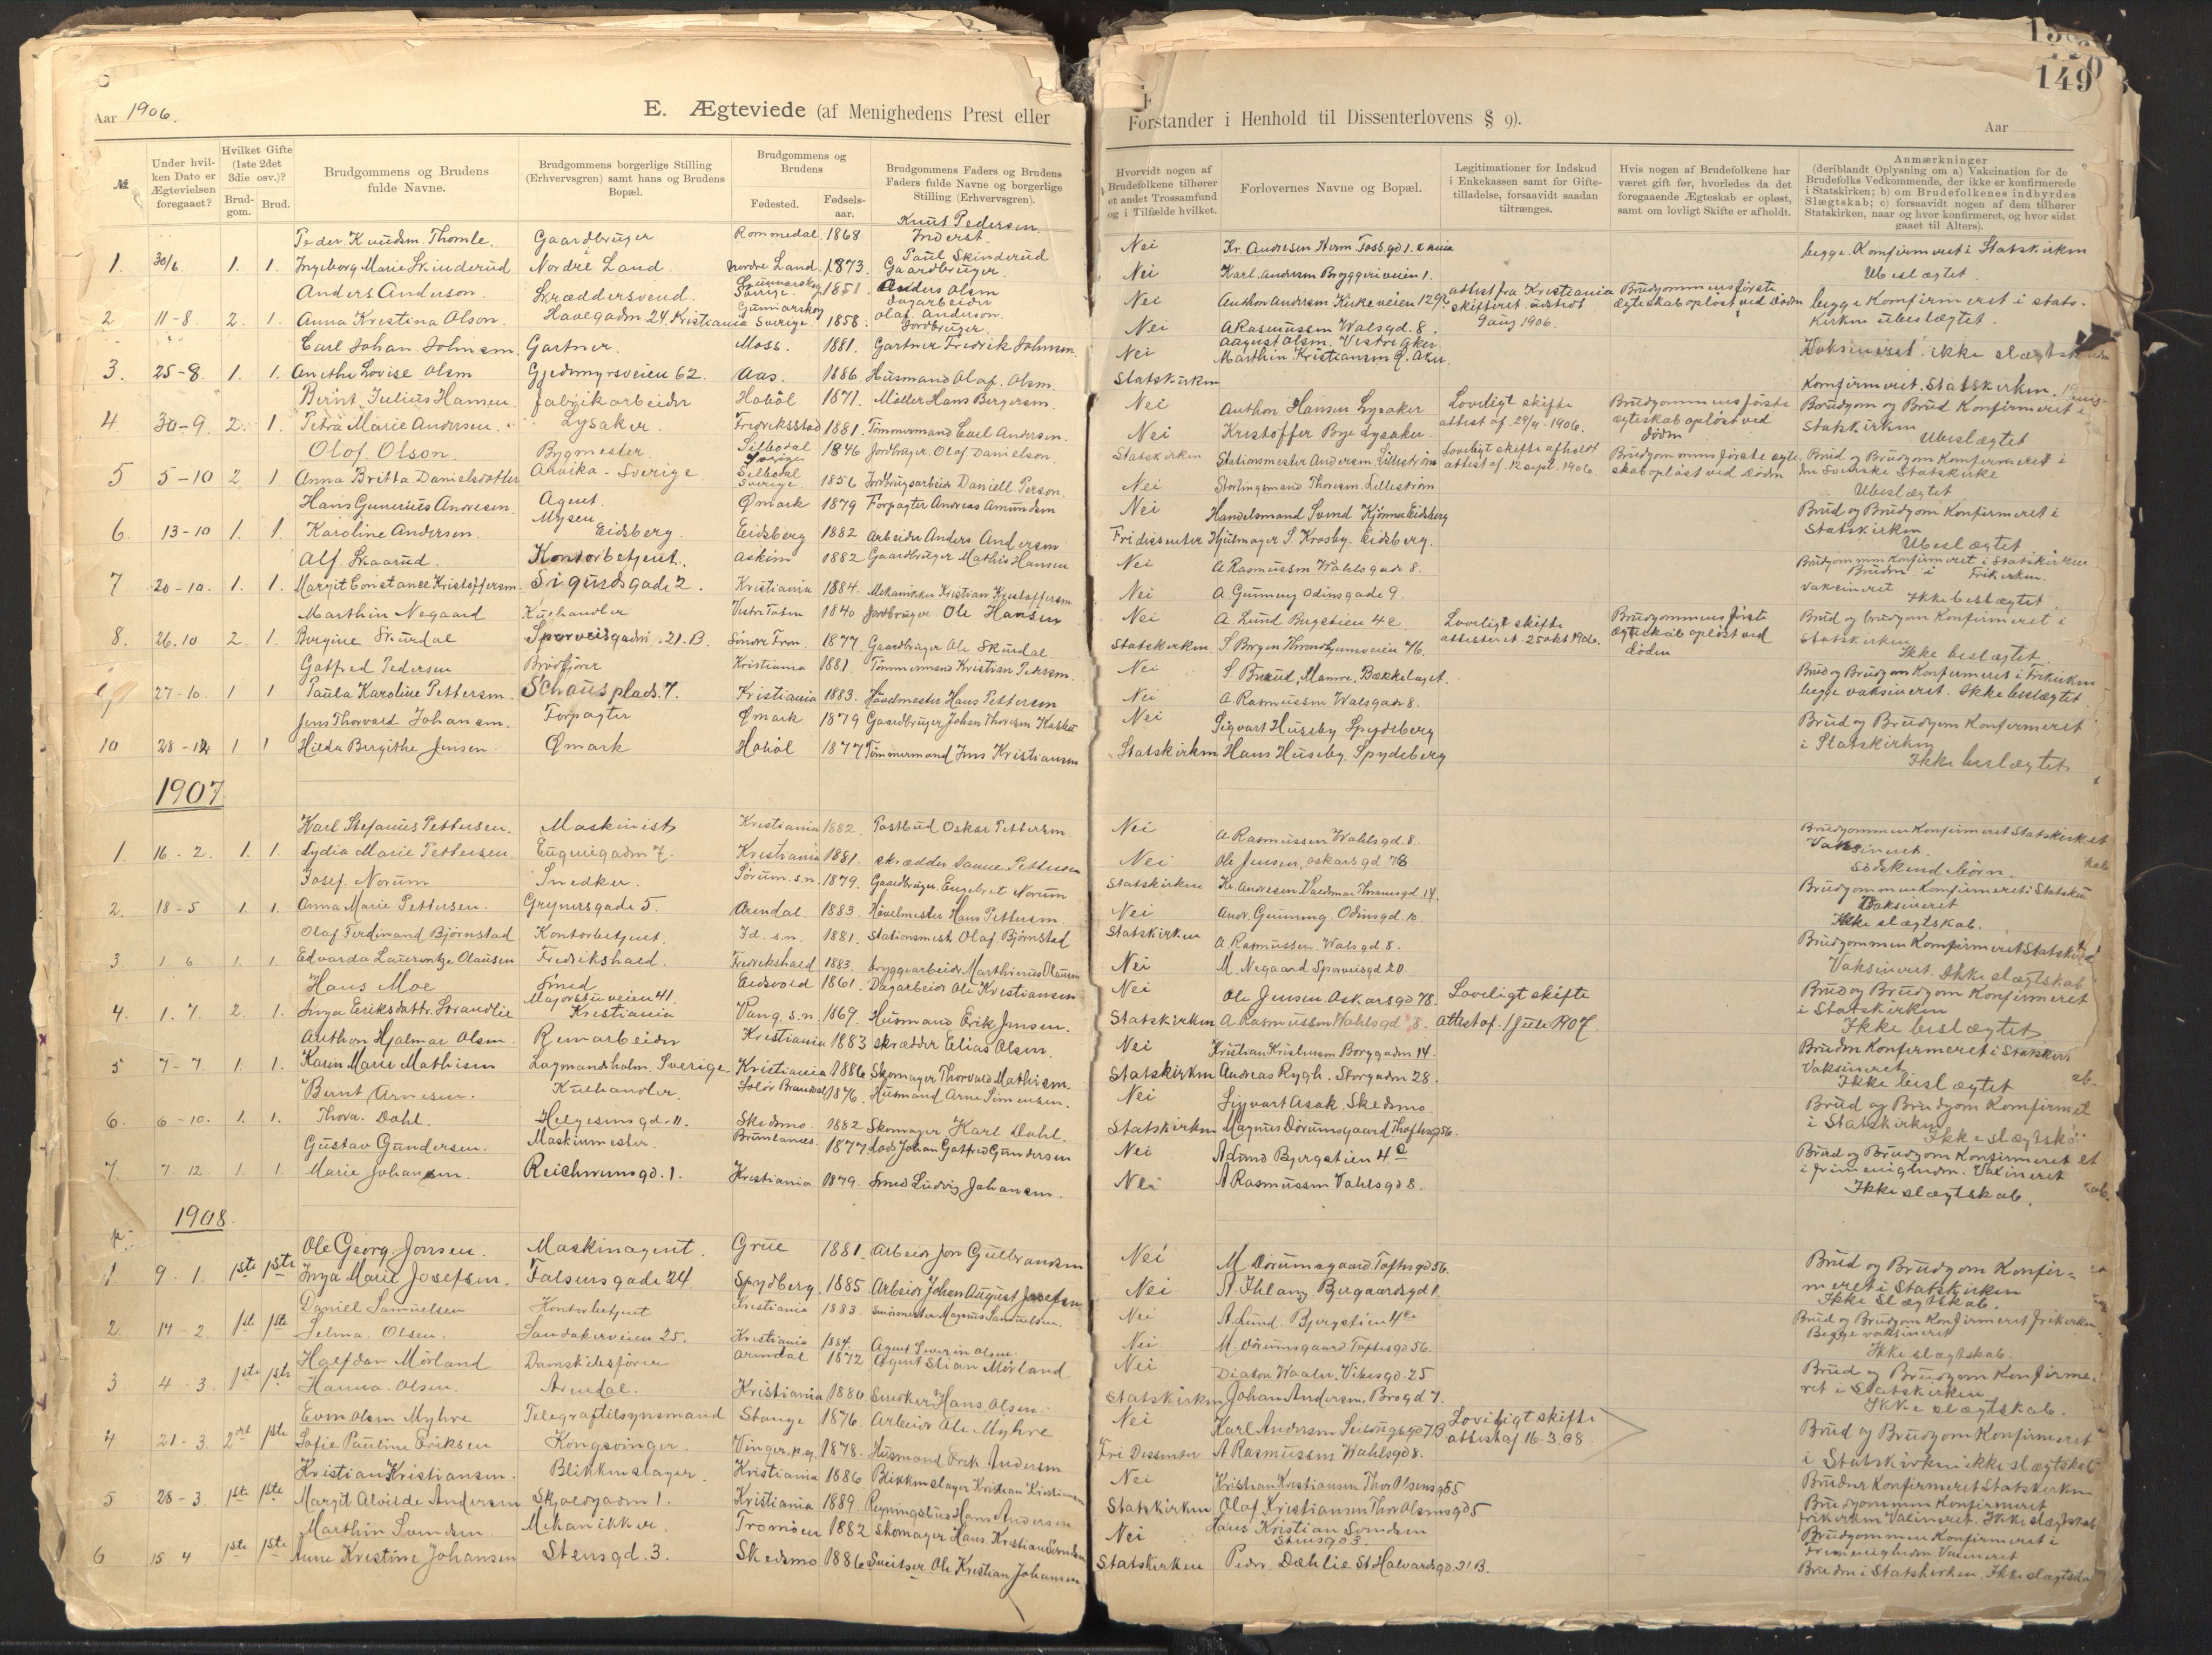 Aar 1906.
E. Ægteviede (af Menighedens Prest eller
Forstander i Henhold til Dissenterlovens § 9).
Aar
149
№
Under hvilken Dato er Ægtevielsen foregaaet?
Hvilket Gifte (1ste 2det 3die osv.)?
Brudgom. Brud.
Brudgommens og Brudens fulde Navne.
Brudgommens borgerlige Stilling (Erhvervsgren) samt hans og Brudens Bopæl.
Brudgommens og Brudens
Fødested. Fødselsaar.
Brudgommens Faders og Brudens Faders fulde Navne og borgerlige Stilling (Erhvervsgren).
Hvorvidt nogen af Brudefolkene tilhører et andet Trossamfund og i Tilfælde hvilket.
Forlovernes Navne og Bopæl.
Legitimationer for Indskud i Enkekassen samt for Giftetilladelse, forsaavidt saadan tiltrænges.
Hvis nogen af Brudefolkene har været gift før, hvorledes da det foregaaende Ægteskab er opløst, samt om lovligt Skifte er afholdt.
Anmærkninger (deriblandt Oplysning om a) Vakcination for de Brudefolks Vedkommende, der ikke er konfirmerede i Statskirken; b) om Brudefolkenes indbyrdes Slægtskab; c) forsaavidt nogen af dem tilhører Statskirken, naar og hvor konfirmeret, og hvor sidst gaaet til Alters).
Peder Knudsen Thomle. Gaardbruger Rommedal 1868 Knut Pedersen Inderst. Nei Kr. Andresen Herm. Fossgd 1. begge Konfirmeret i Statskirken
1. 30/6 1. 1. Ingeborg Marie Skinderud Nordre Land. Nordre Land. 1873. Paul Skinderud Gaardbruger. Nei Karl Andersen Bryggeriveien 1. Ubeslægtet.
Anders Anderson. Skræddersvend. Gunnarskog Sverige. 1851 Anders Olsen Dagarbeider Nei Anthon Andersen Kirkeveien 129 b attest fra Kristiania skifteret udstedt 9 aug 1906. Brudgommens første ægteskab opløst ved døden begge Konfirmeret i stats-
2 11-8 2. 1. Anna Kristina Olson. Havegaden 24. Kristiania Gunnarskog Sverige. 1858. Olaf Anderson. Jordbruger. Nei A Rasmussen Walsgd. 8. kirken ubeslægtet.
Carl Johan Johnsen Gartner. Moss. 1881. Gartner Fredrik Johnsen. Nei August Olsen. Vestre Aker Vaksineret ikke slægtskab
3. 25-8. 1. 1. Anethe Lovise Olsen Gjedemyrsveien 62. Aas. 1886 Husmand Olaf. Olsen. Statskirken Marthin Kristiansen Ø. Aker Konfirmeret. Statskirken.
Bernt Julius Hansen fabrikarbeider Hobøl 1871. Møller Hans Bergersen. Nei Anthon Hansen Lysaker Lovligt skifte attest af 29/9 1906. Brudgommens første ægteskab opløst ved døden Brudgom og Brud Konfirmeret i
4 30-9. 2. 1. Petra Marie Andersen. Lysaker. Fredriksstad 1881. Tømmermand Carl Andersen. Nei Kristoffer Bye Lysaker. Statskirken Ubeslægtet
Olof. Olson. Bygmester. Silbodal Sverige 1846 Jordbruger Olof Danielson. Statskirken Stationsmester Andersen, Lillestrøm Lovligt skifte afholdt attest af 12 sept. 1906 Brudgommens første ægteskab opløst ved døden Brud og Brudgom Konfirmeret i
5 5-10 2 1 Anna Britta Danielsdotter Arvika - Sverige Silbodal Sverige 1856 Jordbrugsarbeider Daniell Person. Nei Stortingsmand Thoresen. Lillestrøm den Svenske Statskirke Ubeslægtet
Hans Gunerius Andresen Agent Ømark 1879 Forpagter Andreas Amundsen Nei Handelsmand Svend Kjønnæ Eidsberg Brud og Brudgom Konfirmeret i
6. 13-10 1. 1. Karoline Andersen. Mysen Eidsberg. Eidsberg 1882 Arbeider Anders Andersen Fri dissenter Hjulmager S. Krosby. Eidsberg. Statskirken Ubeslægtet
Alf. Skaarud. Kontorbetjent. Askim 1882 Gaardbruger Mathis Hansen Nei A Rasmussen Wahlsgade 8. Brudgommen Konfirmeret i Statskirken
7 20-10. 1. 1. Margit Constance Kristoffersen. Sigurdsgade 2. Kristiania 1884. Mekaniker Kristian Kristoffersen Nei A Gunneng Odinsgade 9. Bruden i Frikirken. vaksineret Ikke beslægtet
Marthin Negaard Kuhandler Vestre Toten 1840 Jordbruger Ole Hansen Nei A Lund Bergstien 4 c Lovligt skifte attesteret 25 okt 1906. Brudgommens første ægteskab opløst ved døden Brud og brudgom Konfirmeret i
8. 26.10 2. 1. Bergine Skurdal Sporveisgaden. 21. B. Søndre Fron 1877 Gaardbruger Ole Skurdal Statskirken S. Borgen Throndhjemsveien 76. Statskirken Ikke beslægtet
Gotfred Pedersen Brødkjører Kristiania 1881 Tømmermand Kristian Pedersen. Nei S. Buerud, Mamre. Bækkelaget. Brud og Brudgom Konfirmeret i Frikirken
9 27-10. 1 1 Paula Karoline Pettersen. Schaus plads. 7. Kristiania 1883. Høvelmester Hans Pettersen Nei A Rasmussen Walsgade 8. begge vaksineret. Ikke beslægtet
Jens Thorvald Johansen. Forpagter Ømark 1879 Gaardbruger Johan Thoresen Nei Sigvart Huseby Spydeberg Brud og Brudgom Konfirmeret
10 28-12 1 1 Hilda Bergithe Jensen Ømark Hobøl 1877 Tømmermand Jens Kristiansen Statskirken Hans Huseby. Spydeberg i Statskirken Ikke beslægtet
1907
Karl Stefanus Pettersen. Maskinist Kristiania 1882. Postbud Oskar Pettersen. Nei A Rasmussen Wahlsgd. 8 Brudgommen Konfirmeret Statskirken
1. 16 - 2. 1. 1. Lydia Marie Pettersen Eugenigaden 7. Kristiania 1881. skrædder Pettersen Nei Ole Jensen, Oskarsgd 78 Vaksineret. Sødskendebørn.
Josef. Norum Snedker. Sørum. s.n. 1879. Gaardbruger. Engebret Norum Statskirken Kr. Andresen Valdemar Thranesgd 14. Brudgommen Konfirmeret i Statskirken
2. 18 - 5 1. 1. Anna Marie Pettersen. Grynersgade 5. Arendal. 1883. Høvelmester Hans Pettersen. Nei Andr. Gunneng. Odinsgd 10. Vaksineret Ikke slægtskab.
Olaf Ferdinand Bjørnstad Kontorbetjent. Id. s.n. 1881. Stationsmest. Olaf Bjørnstad Statskirken A Rasmussen. Walsgd. 8. Brudgommen Konfirmeret Statskirken
3 1 6 1. 1. Edvarda Laurentze Olausen Fredrikshald. Fredrikshald. 1883. bryggearbeider Marthinus Olausen Nei M. Negaard Sporveisgd 20 Vaksineret. Ikke slægtskab
Hans Moe Smed Eidsvold 1861. Dagarbeider Ole Kristiansen Nei Ole Jensen Oskarsgd 78. Lovligt skifte attest af. 1 Juli 1907. Brud og Brudgom Konfirmeret
4. 1. 7. 2. 1. Inga Eriksdattr. Strandlie Majorstuveien 41. Kristiania Vang. s.n. 1869. Husmand Erik Jensen. Statskirken A Rasmussen Wahlsgd 8. i Statskirken Ikke beslægtet
Anthon Hjalmar Olsen. Remarbeider Kristiania 1883 skrædder Elias Olsen. Nei Kristian Kristensen Borggaden 14. Bruden Konfirmeret i Statskirken
5 7-7 1. 1. Karen Marie Mathisen Lagmandsholm. Sverige. Kristiania 1886 Skomager Thorvald Mathisen. Statskirken Andreas Rygh. Storgaden 28. Vaksineret Ikke beslægtet
Bernt Arnesen. Kuhandler. Solør Brandval 1876. Husmand Arne Simensen. Nei Sigvart Asak. Skedsmo Brud og Brudgom Konfirmeret
6. 6-10. 1. 1. Thora. Dahl. Helgesensgd. 11. Skedsmo. 1882 Skomager Karl Dahl. Statskirken Magnus Dørumsgaard Thoftesgd 56. i Statskirken Ikke slægtskab
Gustav Gundersen. Maskinmester. Brunlanes. 1877 Lods Johan Gotfred Gundersen Nei A Lund Bergstien 4 c Brud og Brudgom Konfirmeret
7. 7. 12 1. 1. Marie Johansen. Reichweinsgd. 1. Kristiania 1879. Smed Ludvig Johansen. Nei A Rasmussen Vahlsgd 8. i frimenigheden. Vaxineret Ikke slægtskab.
1908.
Ole Georg Jonsen. Maskinagent. Grue 1881. Arbeider Jon Gulbrandsen Nei M Dørumsgaard Toftesgd 56. Brud og Brudgom Konfir-
1 9 - 1. 1ste 1ste Inga Marie Josefsen. Falsensgade 24 Spydberg 1885. Arbeider Johan August Josefsen Nei A. Ihlang Bergaardsgd 1 meret i Statskirken Ikke slægtskab.
Daniel Samuelsen Kontorbetjent Kristiania 1883. Magnus Samuelsen. Nei A Lund. Bergstien 4 c Brud og Brudgom Konfirmeret Frikirken
2. 14 - 2. 1ste 1ste Selma. Olsen. Sandakerveien 25. Kristiania 1884. Agent Severin Olsen Nei M. Dørumsgaard Toftesgd 56. Begge vaksineret Ikke slægtskab.
Halfdan Mørland Damskibsfører Arendal 1872 Agent Stian Mørland Nei Diakon Waaler. Vibesgd. 25 Brud og Brudgom Konfirme-
3. 4 - 3. 1ste 1ste Hanna. Olsen. Arendal. Kristiania 1880 Snedker Hans Olsen. Statskirken Johan Andersen. Brogd 7. ret i Statskirken Ikke slægtskab.
Even Olsen Myhre Telegraftilsynsmand Stange 1876. Arbeider Ole Myhre Nei Karl Andersen Seilduksgd 7 B Lovligt skifte attest af 16-3.08. Brud og Brudgom Konfirmeret
4 21 - 3. 2det 1ste Sofie Pauline Eriksen Kongsvinger. Vinger. p.g. 1878. Husmand Erik Andersen Fri Dissenter A Rasmussen Wahlsgd 8. i Statskirken ikke slægtskab
Kristian Kristiansen. Blikkenslager. Kristiania 1886 Blikkenslager Kristian Kristiansen Nei Kristian Kristiansen Thor Olsensgd 5 Bruden Konfirmeret Statskirken
5 28 - 3 1ste 1ste Margit Alvilde Andersen Skjoldgaden 1. Kristiania 1889. Hans Andersen Statskirken Olaf Kristiansen Thor Olsensgd 5 Brudgommen Konfirmeret frikirken Vaxineret. Ikke slægtskab
Marthin Svendsen. Mekanikker. Tromøen 1882 Skomager Hans. Kristian Svendsen Nei Hans Kristian Svendsen Stensgd 3. Brudgommen Konfirmeret i Frimenigheden Vaxineret
6 15 4 1ste 1ste Anne Kristine Johansen Stensgd. 3. Skedsmo 1886 Sveitser Ole Kristian Johansen Statskirken Peder. Dæhlie St Halvardsgd. 21 B. Bruden i Statskirken. Ikke slægtskab